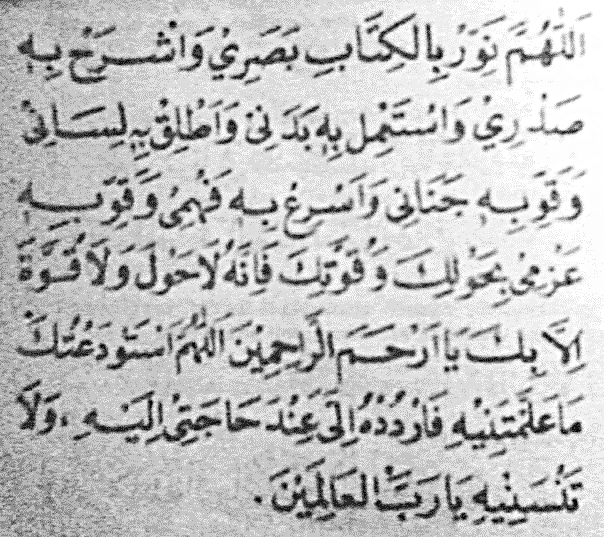 اَللّٰهُمَّ نَوِّرْ بِالْكِتَابِ بَصَرِيْ وَاشْرَحْ بِهِ
صَدْرِيْ وَاسْتَعْمِلْ بِهِ بَدَنِيْ وَاَطْلِقْ بِهِ لِسَانِيْ
وَقَوِّبِهِ جَنَانِيْ وَاَسْرِعْ بِهِ فَهْمِيْ وَقَوِّبِهِ
عَزْمِيْ بِحَوْلِكَ وَقُوَّتِكَ فَاِنَّهُ لَاحَوْلَ وَلَاقُوَّةَ
اِلَّا بِكَ يَا اَرْحَمَ الرَّاحِمِيْنَ اَللّٰهُمَّ اسْتَوْدَعْتُكَ
مَاعَلَّمْتَنِيْهِ فَارْدُدْهُ اِلَيَّ عِنْدَ حَاجَتِيْ اِلَيْهِ ، وَلَا
تَنْسَنِيْهِ يَا رَبَّ الْعَالَمِيْنَ .